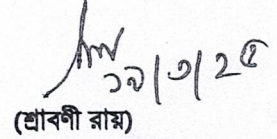 ১৯/৩/২৫
(শ্রাবণী রায়)